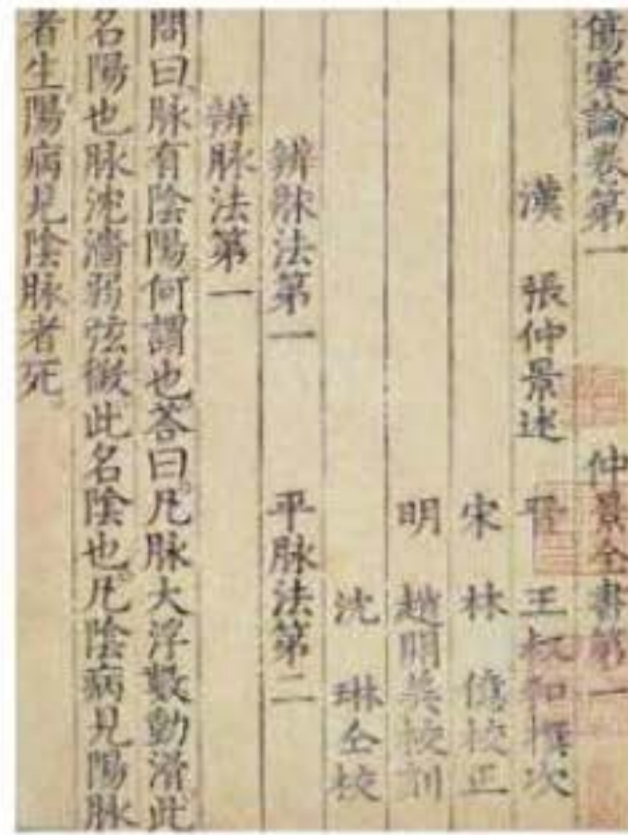 傷寒論卷第一　仲景全書第一
漢　張仲景述　晉　王叔和撰次
宋　林　億校正
明　趙開美校刻
沈　琳仝校
辨脉法第一　平脉法第二
辨脉法第一
問曰脉有陰陽何謂也答曰凡脉大浮數動滑此
名陽也脉沈濇弱弦微此名陰也凡陰病見陽脉
者生陽病見陰脉者死